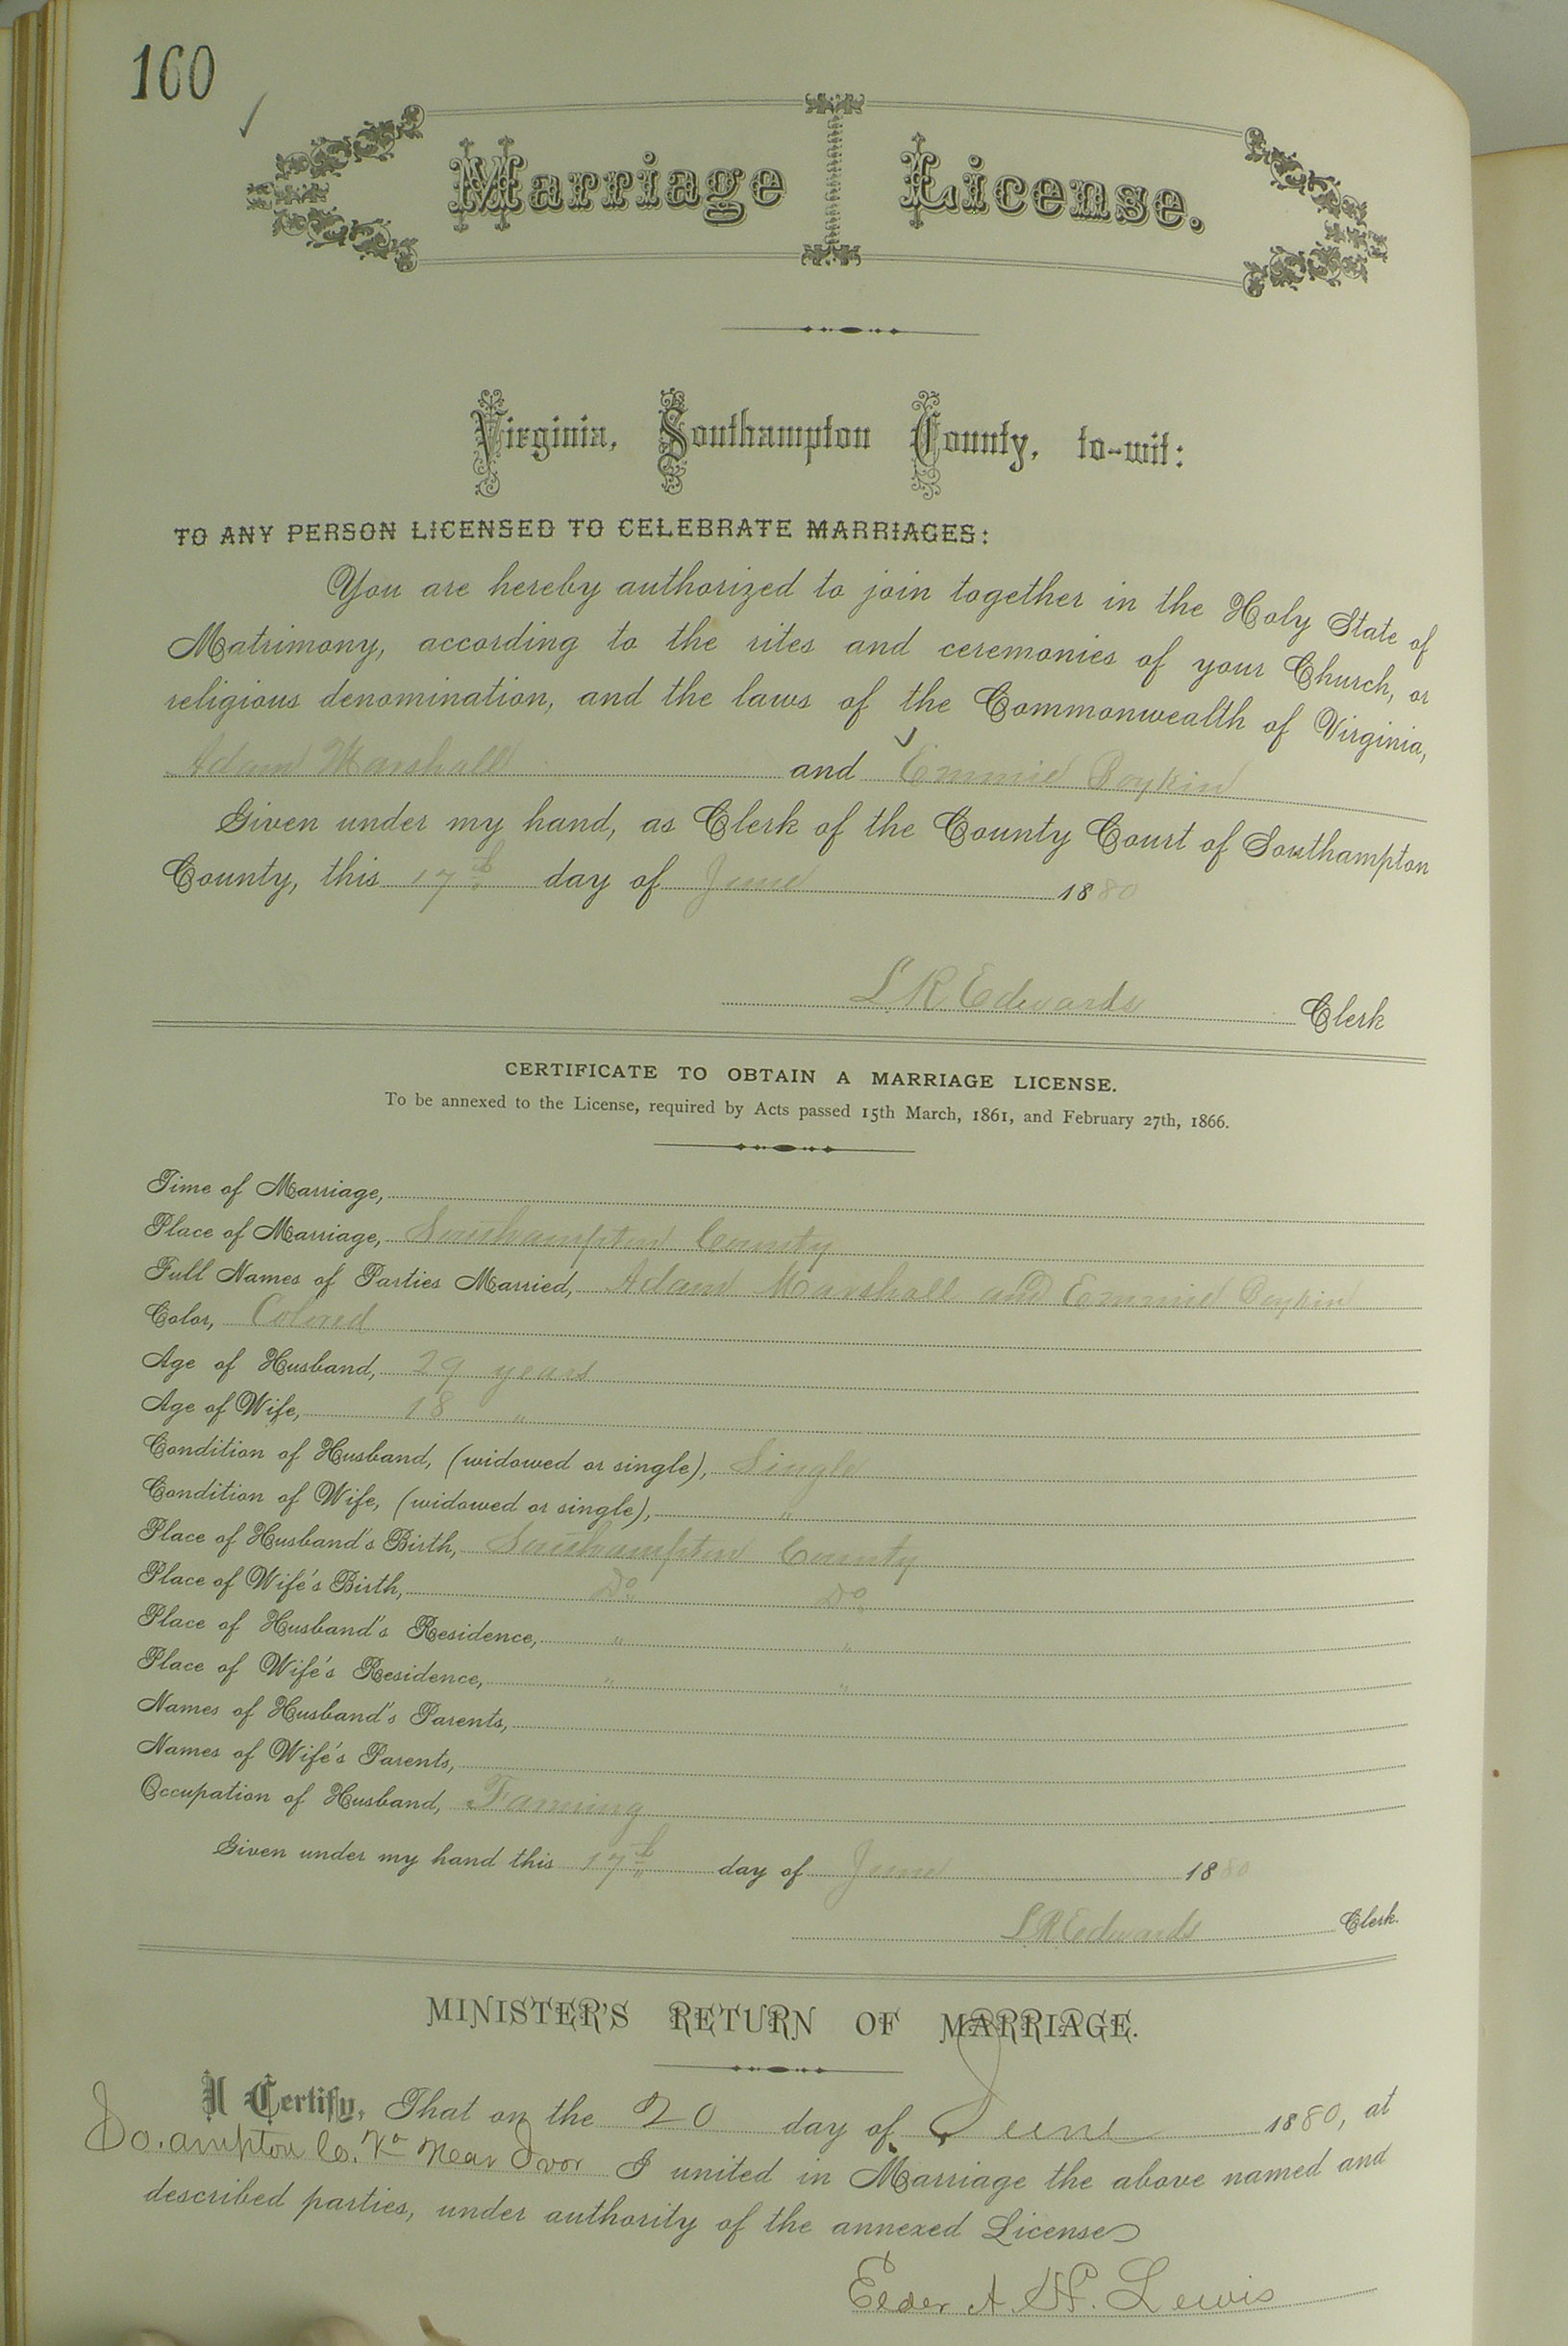 160
Marriage License.
Virginia, Southampton County, to-wit:
TO ANY PERSON LICENSED TO CELEBRATE MARRIAGES:
You are hereby authorized to join together in the Holy State of
Matrimony, according to the rites and ceremonies of your Church, or
religious denomination, and the laws of the Commonwealth of Virginia,
Adam Marshall and Emmie Boykin
Given under my hand, as Clerk of the County Court of Southampton
County, this 17th day of June 1880
L R Edwards Clerk
CERTIFICATE TO OBTAIN A MARRIAGE LICENSE.
To be annexed to the License, required by Acts passed 15th March, 1861, and February 27th, 1866.
Time of Marriage,
Place of Marriage, Southampton County
Full Names of Parties Married, Adam Marshall and Emmie Boykin
Color, Colored
Age of Husband, 29 years
Age of Wife, 18 "
Condition of Husband, (widowed or single), Single
Condition of Wife, (widowed or single), "
Place of Husband's Birth, Southampton County
Place of Wife's Birth, Do Do
Place of Husband's Residence, " "
Place of Wife's Residence, " "
Names of Husband's Parents,
Names of Wife's Parents,
Occupation of Husband, Farming
Given under my hand this 17th day of June 1880
L R Edwards Clerk.
MINISTER'S RETURN OF MARRIAGE.
I Certify, That on the 20 day of June 1880, at
So.ampton Co. Va Near Ivor I united in Marriage the above named and
described parties, under authority of the annexed License
Elder A. Lewis